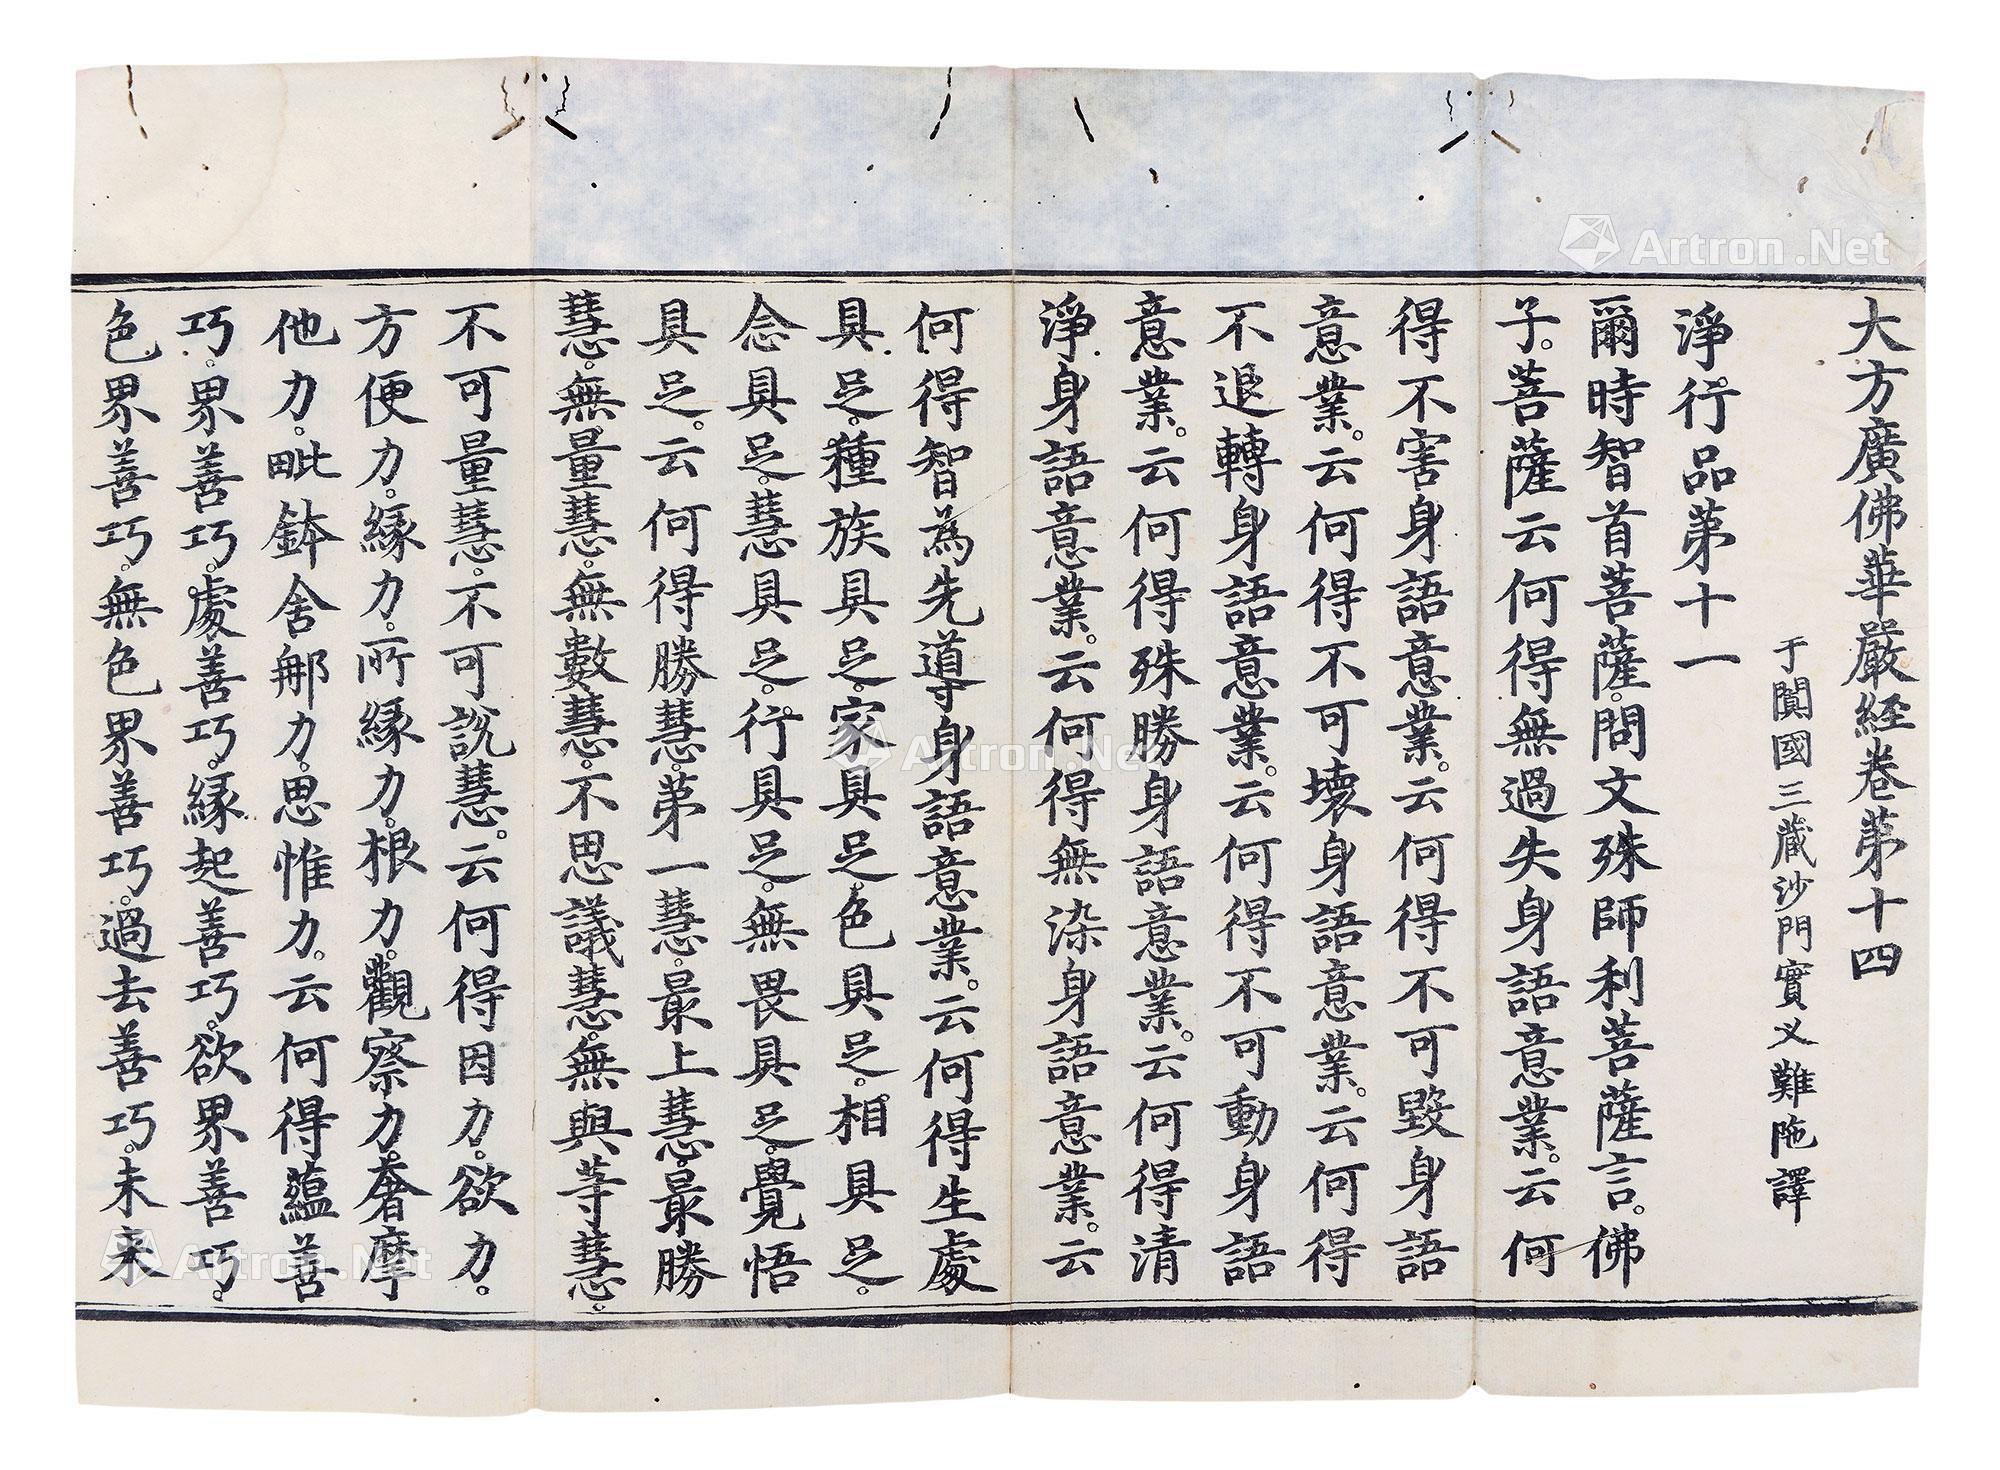 大方廣佛華嚴経卷第十四
于闐國三藏沙門實义難陁譯
淨行品第十一
爾時智首菩薩。問文殊師利菩薩言。佛
子。菩薩云何得無過失身語意業。云何
得不害身語意業。云何得不可毀身語
意業。云何得不可壞身語意業。云何得
不退轉身語意業。云何得不可動身語
意業。云何得殊勝身語意業。云何得清
淨身語意業。云何得無染身語意業。云
何得智為先導身語意業。云何得生處
具足。種族具足。家具足。色具足。相具足。
念具足。慧具足。行具足。無畏具足。覺悟
具足。云何得勝慧。第一慧。最上慧。最勝
慧。無量慧。無數慧。不思議慧。無與等慧。
不可量慧。不可說慧。云何得因力。欲力。
方便力。緣力。所緣力。根力。觀察力。奢摩
他力。毗鉢舍那力。思惟力。云何得蘊善
巧。界善巧。處善巧。緣起善巧。欲界善巧。
色界善巧。無色界善巧。過去善巧。未来
Artron.Net
Artron.Net
Artron.Net
Artron.Net